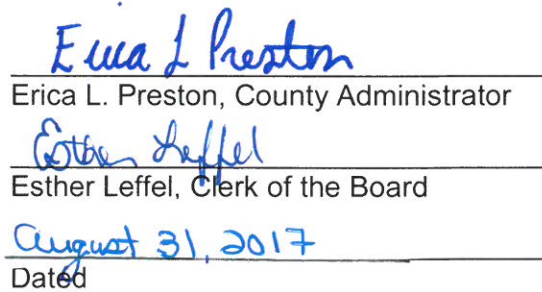 Erica L Preston
Erica L. Preston, County Administrator
Esther Leffel
Esther Leffel, Clerk of the Board
August 31, 2017
Dated